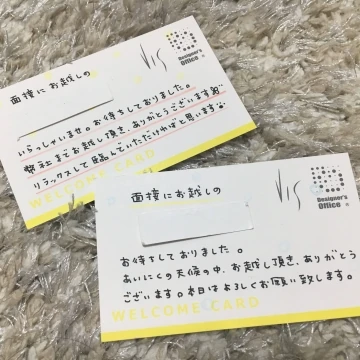 面接にお越しの
VIS
Designer's
Office
いらっしゃいませ。お待ちしておりました。
弊社までお越し頂き、ありがとうございます
リラックスしてお話していただければと思います
WELCOME CARD
面接にお越しの
VIS
Designer's
Office
お待ちしておりました。
あいにくの天候の中、お越し頂き、ありがとう
ございます。本日はよろしくお願い致します。
WELCOME CARD